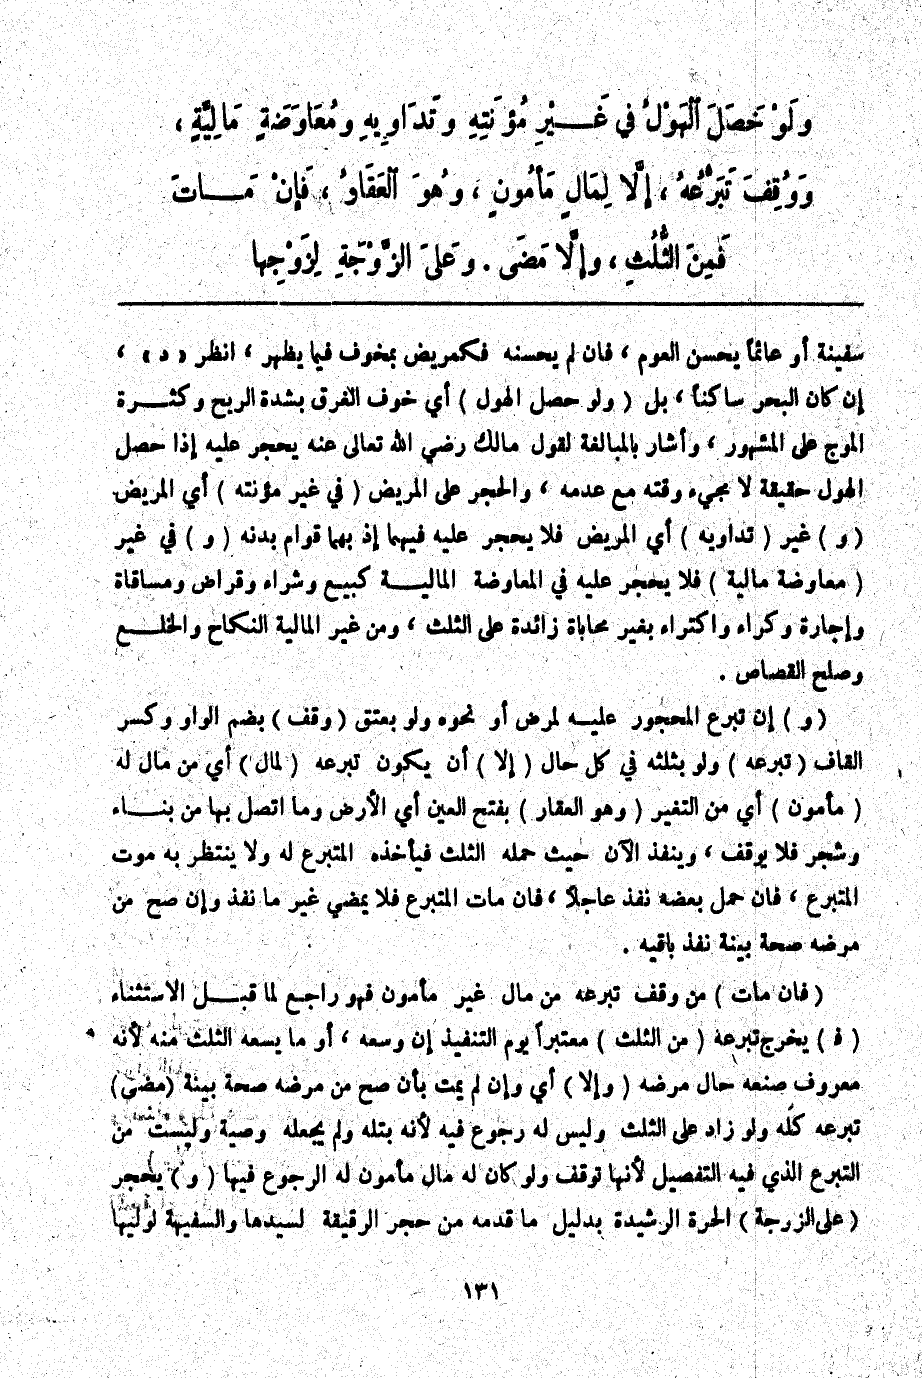 وَلَوْ حَصَلَ ٱلْهَوْلُ فِي غَيْرِ مُؤْنَتِهِ وَتَدَاوِيهِ وَمُعَاوَضَةٍ مَالِيَّةٍ ،
وَوُقِفَ تَبَرُّعُهُ ، إِلَّا لِمَالٍ مَأْمُونٍ ، وَهُوَ ٱلْعَقَارُ ، فَإِنْ مَاتَ
فَمِنَ الثُّلُثِ ، وَإِلَّا مَضَى . وَعَلَى الزَّوْجَةِ لِزَوْجِهَا
سفينة أو عائماً يحسن العوم ، فان لم يحسنه فكمريض بمخوف فيما يظهر ، انظر « د » ،
إن كان البحر ساكناً ، بل ( ولو حصل الهول ) أي خوف الغرق بشدة الريح وكثرة
الموج على المشهور ، وأشار بالمبالغة لقول مالك رضي الله تعالى عنه يحجر عليه إذا حصل
الهول حقيقة لا مجيء وقته مع عدمه ، والحجر على المريض ( في غير مؤنته ) أي المريض
( و ) غير ( تداويه ) أي المريض فلا يحجر عليه فيهما إذ بهما قوام بدنه ( و ) في غير
( معاوضة مالية ) فلا يحجر عليه في المعاوضة المالية كبيع وشراء وقراض ومساقاة
وإجارة وكراء واكتراء بغير محاباة زائدة على الثلث ، ومن غير المالية النكاح والخلع
وصلح القصاص .
( و ) إن تبرع المحجور عليه لمرض أو نحوه ولو بعتق ( وقف ) بضم الواو وكسر
القاف ( تبرعه ) ولو بثلثه في كل حال ( إلا ) أن يكون تبرعه ( لمال ) أي من مال له
( مأمون ) أي من التغير ( وهو العقار ) بفتح العين أي الأرض وما اتصل بها من بناء
وشجر فلا يوقف ، وينفذ الآن حيث حمله الثلث فيأخذه المتبرع له ولا ينتظر به موت
المتبرع ، فان حمل بعضه نفذ عاجلاً ، فان مات المتبرع فلا يمضي غير ما نفذ وإن صح من
مرضه صحة بينة نفذ باقيه .
( فان مات ) من وقف تبرعه من مال غير مأمون فهو راجع لما قبل الاستثناء
( فـ ) يخرج تبرعه ( من الثلث ) معتبراً يوم التنفيذ إن وسعه ، أو ما يسعه الثلث منه لأنه
معروف صنعه حال مرضه ( وإلا ) أي وإن لم يمت بأن صح من مرضه صحة بينة ( مضى )
تبرعه كله ولو زاد على الثلث وليس له رجوع فيه لأنه بتله ولم يجعله وصية وليست من
التبرع الذي فيه التفصيل لأنها توقف ولو كان له مال مأمون له الرجوع فيها ( و ) يحجر
( على الزوجة ) الحرة الرشيدة بدليل ما قدمه من حجر الرقيقة لسيدها والسفيهة لوليها
١٣١